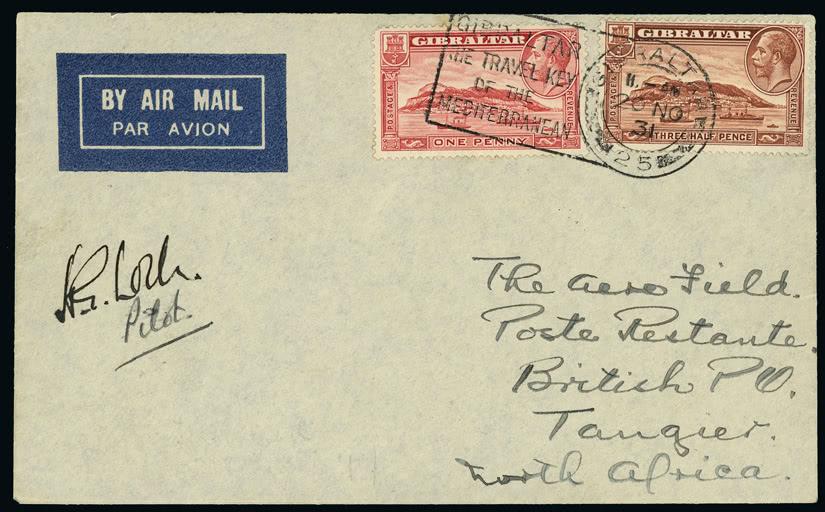 BY AIR MAIL
PAR AVION
GIBRALTAR
POSTAGE &
REVENUE
ONE PENNY
GIBRALTAR
THE TRAVEL KEY
OF THE
MEDITERRANEAN
GIBRALTAR
POSTAGE &
REVENUE
THREE HALF PENCE
GIBRALTAR
20 NO
31
25
Pilot.
The Aero Field.
Poste Restante.
British P.O.
Tangier.
North Africa.